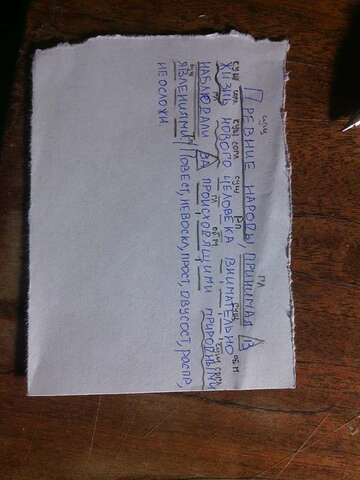 ДРЕВНИЕ НАРОДЫ, ПРИНИМАЛ В
ЖИЗНЬ НОВОГО ЧЕЛОВЕКА ВНИМАТЕЛЬНО
НАБЛЮДАЛИ ЗА ПРОИСХОДЯЩИМИ ПРИРОДНЫМИ
ЯВЛЕНИЯМИ. ПОВЕСТ, НЕВОСКЛ, ПРОСТ, ДВУСОСТ, РАСПР,
НЕОСЛОЖН